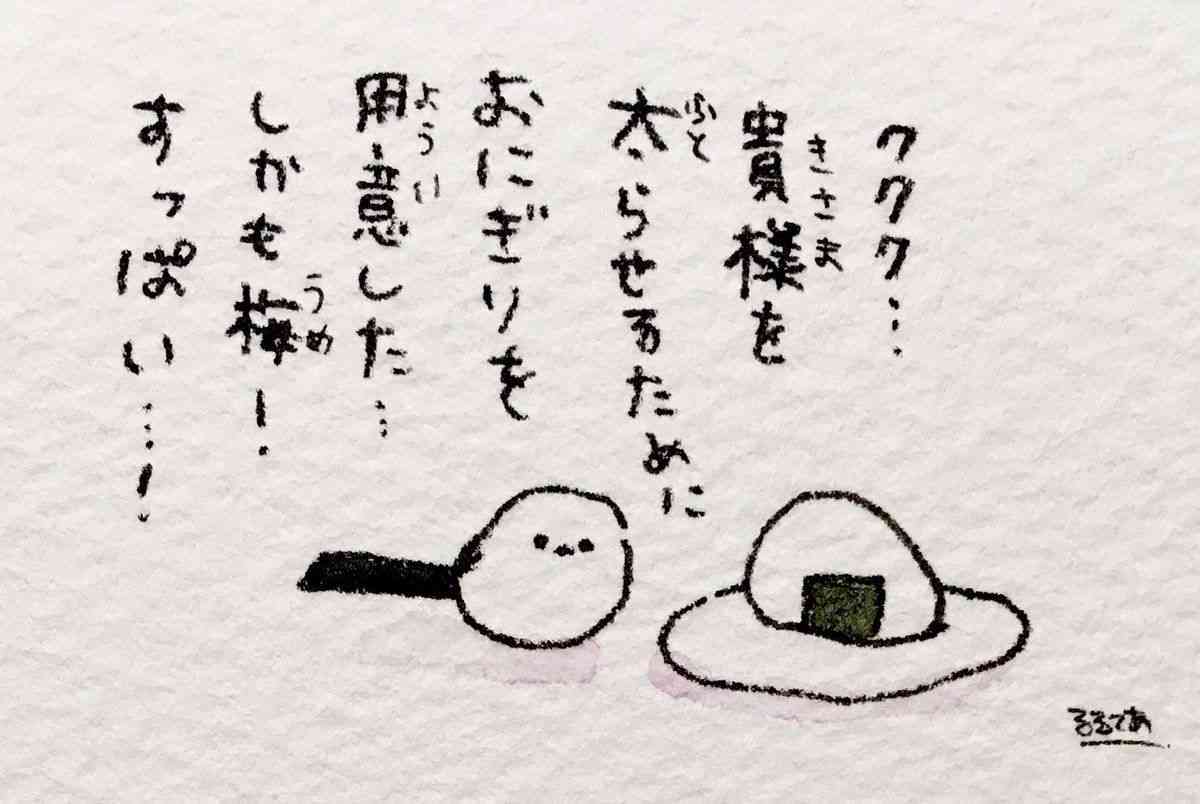 ククク…
貴様を
きさま
太らせるために
ふと
おにぎりを
用意した…
ようい
しかも梅!
うめ
すっぱい…!
るるてあ